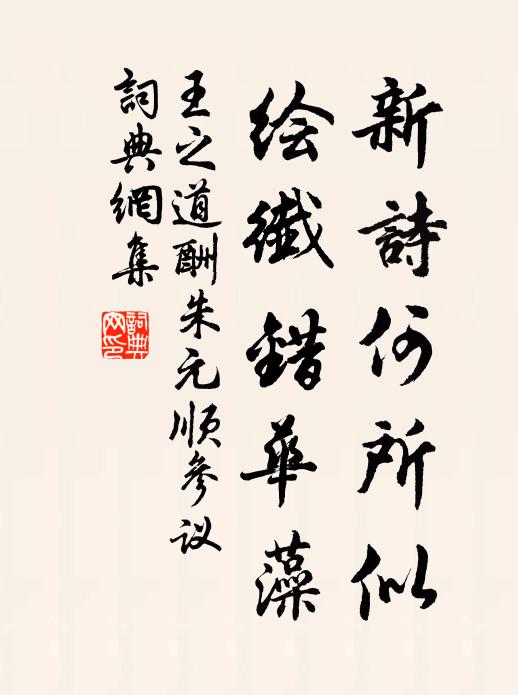 新詩何所似
绘纖錯華藻
王之道酬朱元顺參议
詞典網集
詞典网印